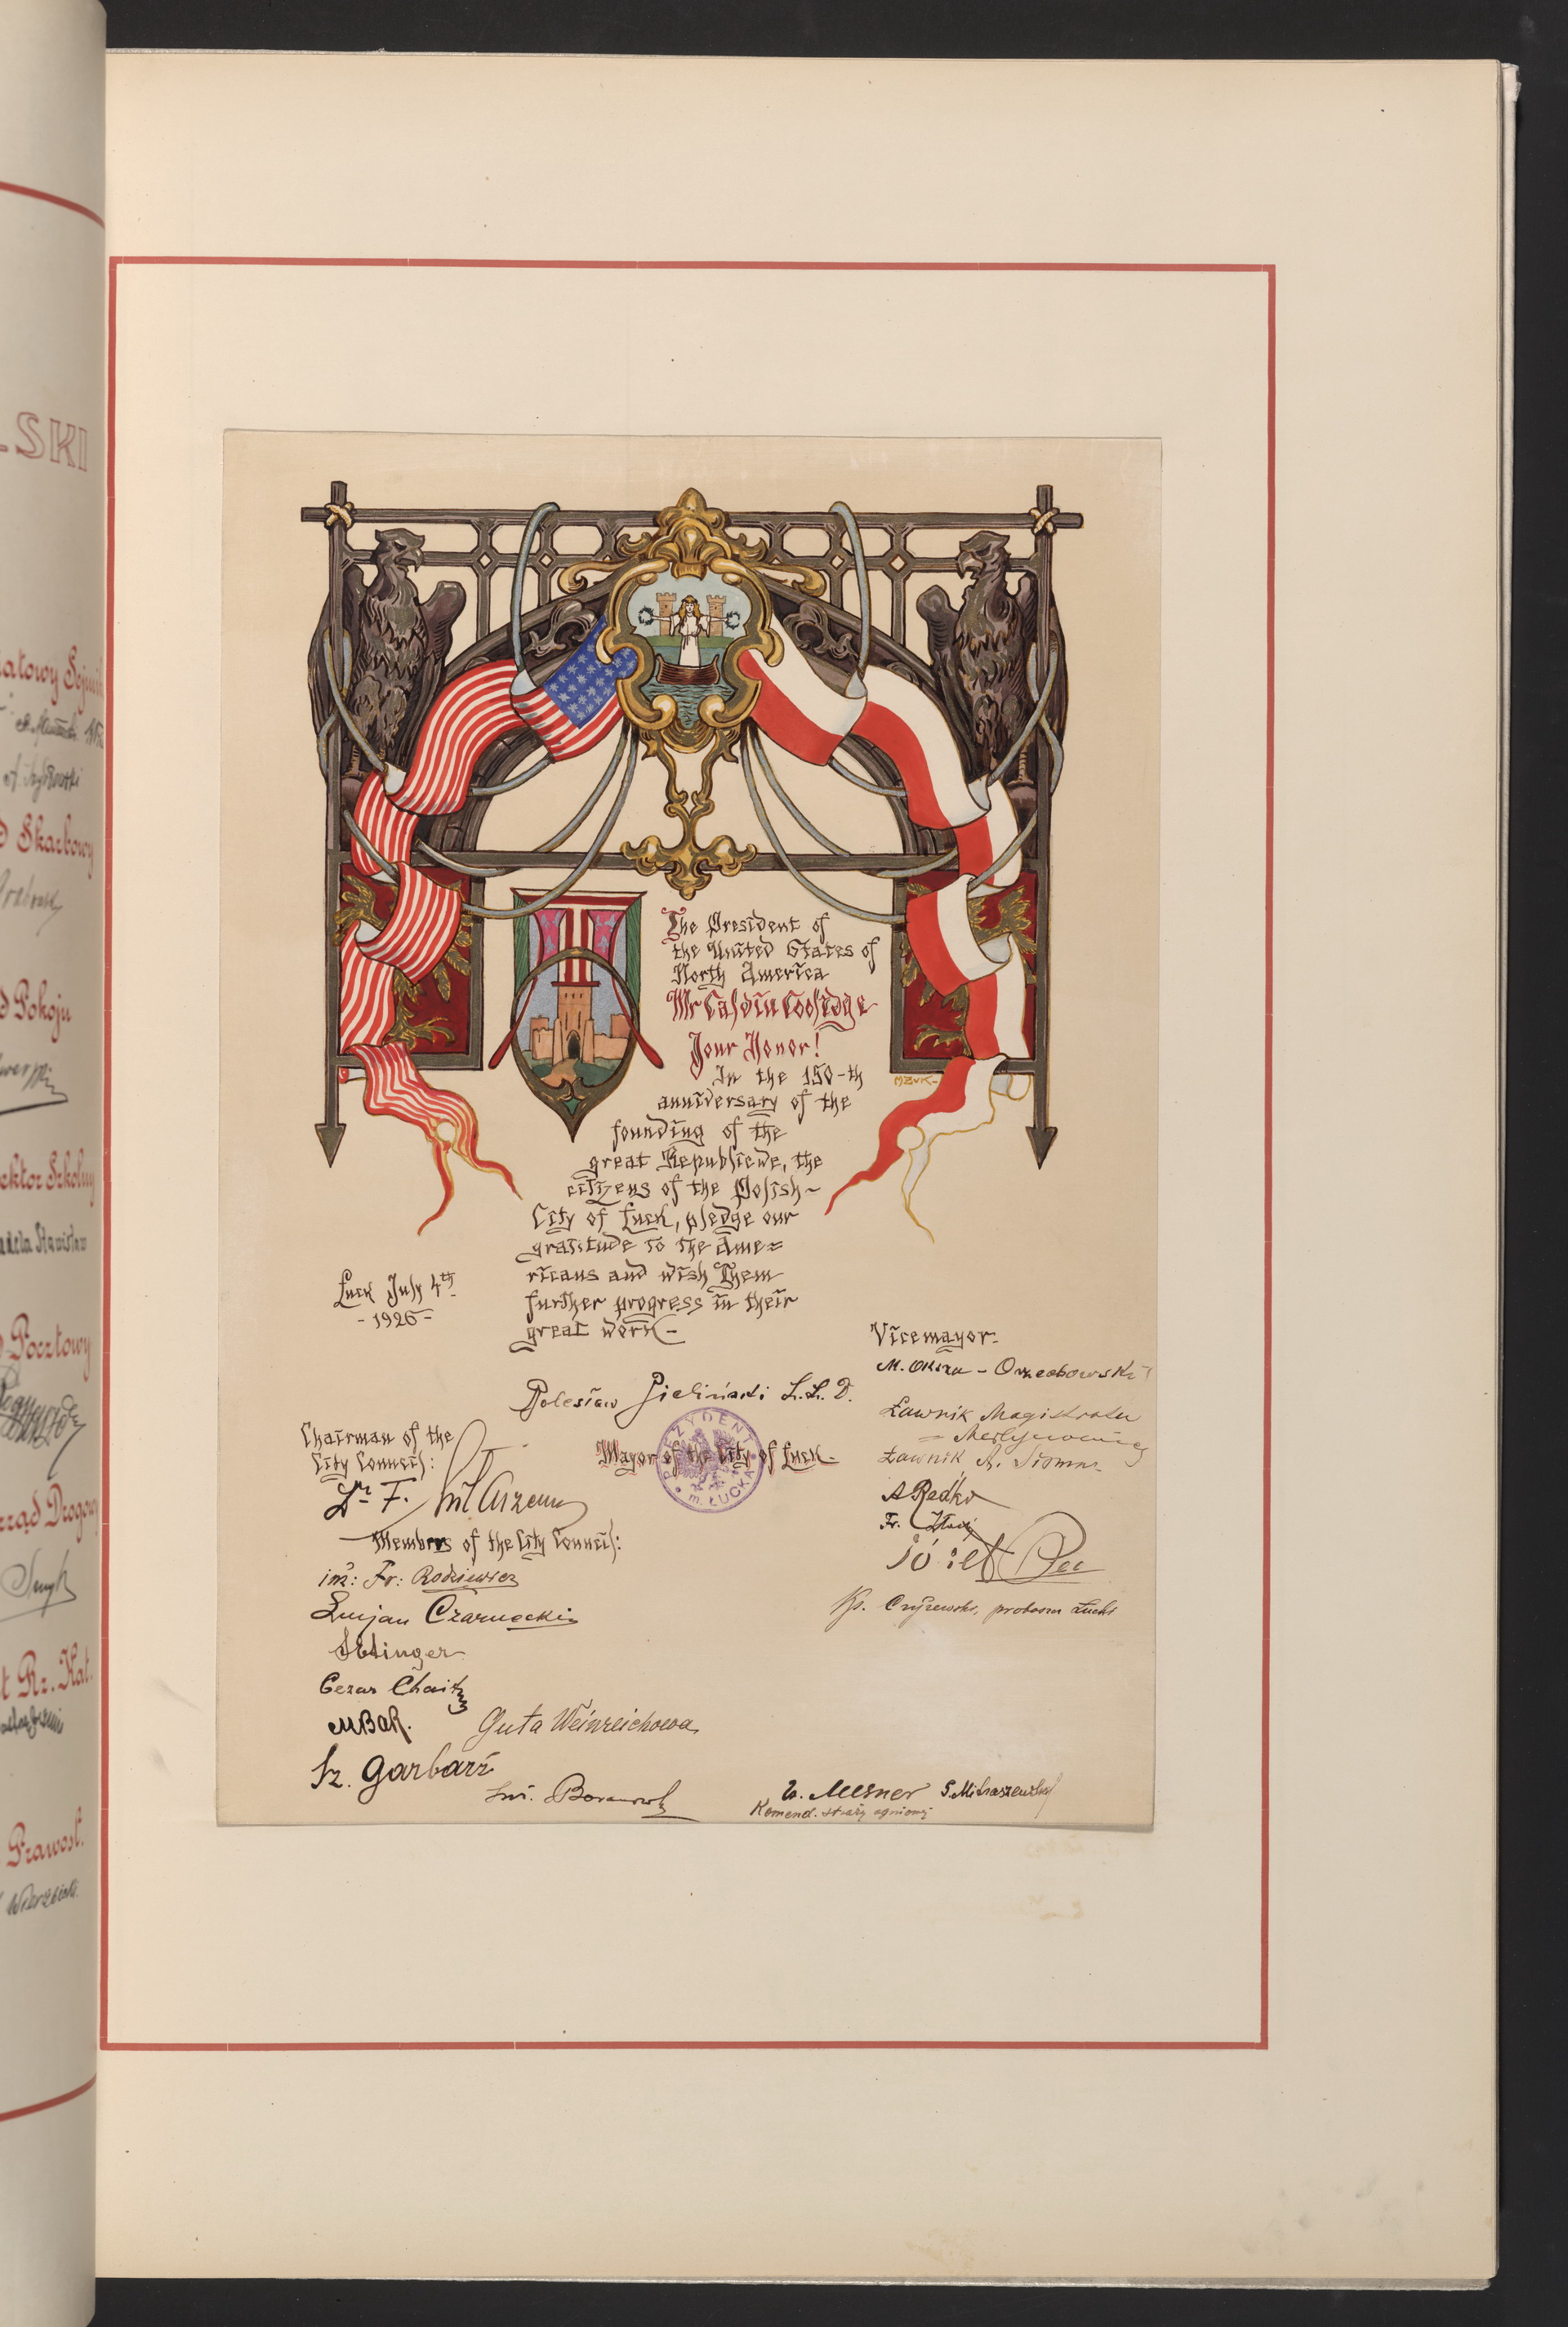 The President of
the United States of
North America
Mr Calvin Coolidge
Your Honor!
In the 150-th
anniversary of the
founding of the
great Republicue, the
citizens of the Polish-
City of Łuck, pledge our
gratitude to the Ame=
ricans and wish Them
further progress in their
great work-
MZUK-
Łuck July 4th
-1926-
Bolesław Zieliński L.L.D.
Mayor of the City of Łuck-
PREZYDENT m. ŁUCKA
Chairman of the
City Council:
Dr F.
Members of the City Council:
inż: Fr: Rodziewicz
Lucjan Czarnecki
Cezar
MBaR.
Guta Weinreichowa
Sz. Garbarz
Vicemayor-
M. Oksza-Orzechowski
Ławnik Magistratu
Ławnik A.
A Redko
Fr.
Józef
Ks. proboszcz Łucki
Mesner
Komend. straży ogniowej
SKI
atowy Sejmik
Skarbowy
Pokoju
ektor Szkolny
adela Stanisław
Pocztowy
rząd Drogowy
t Rz. Kat.
Prawosł.